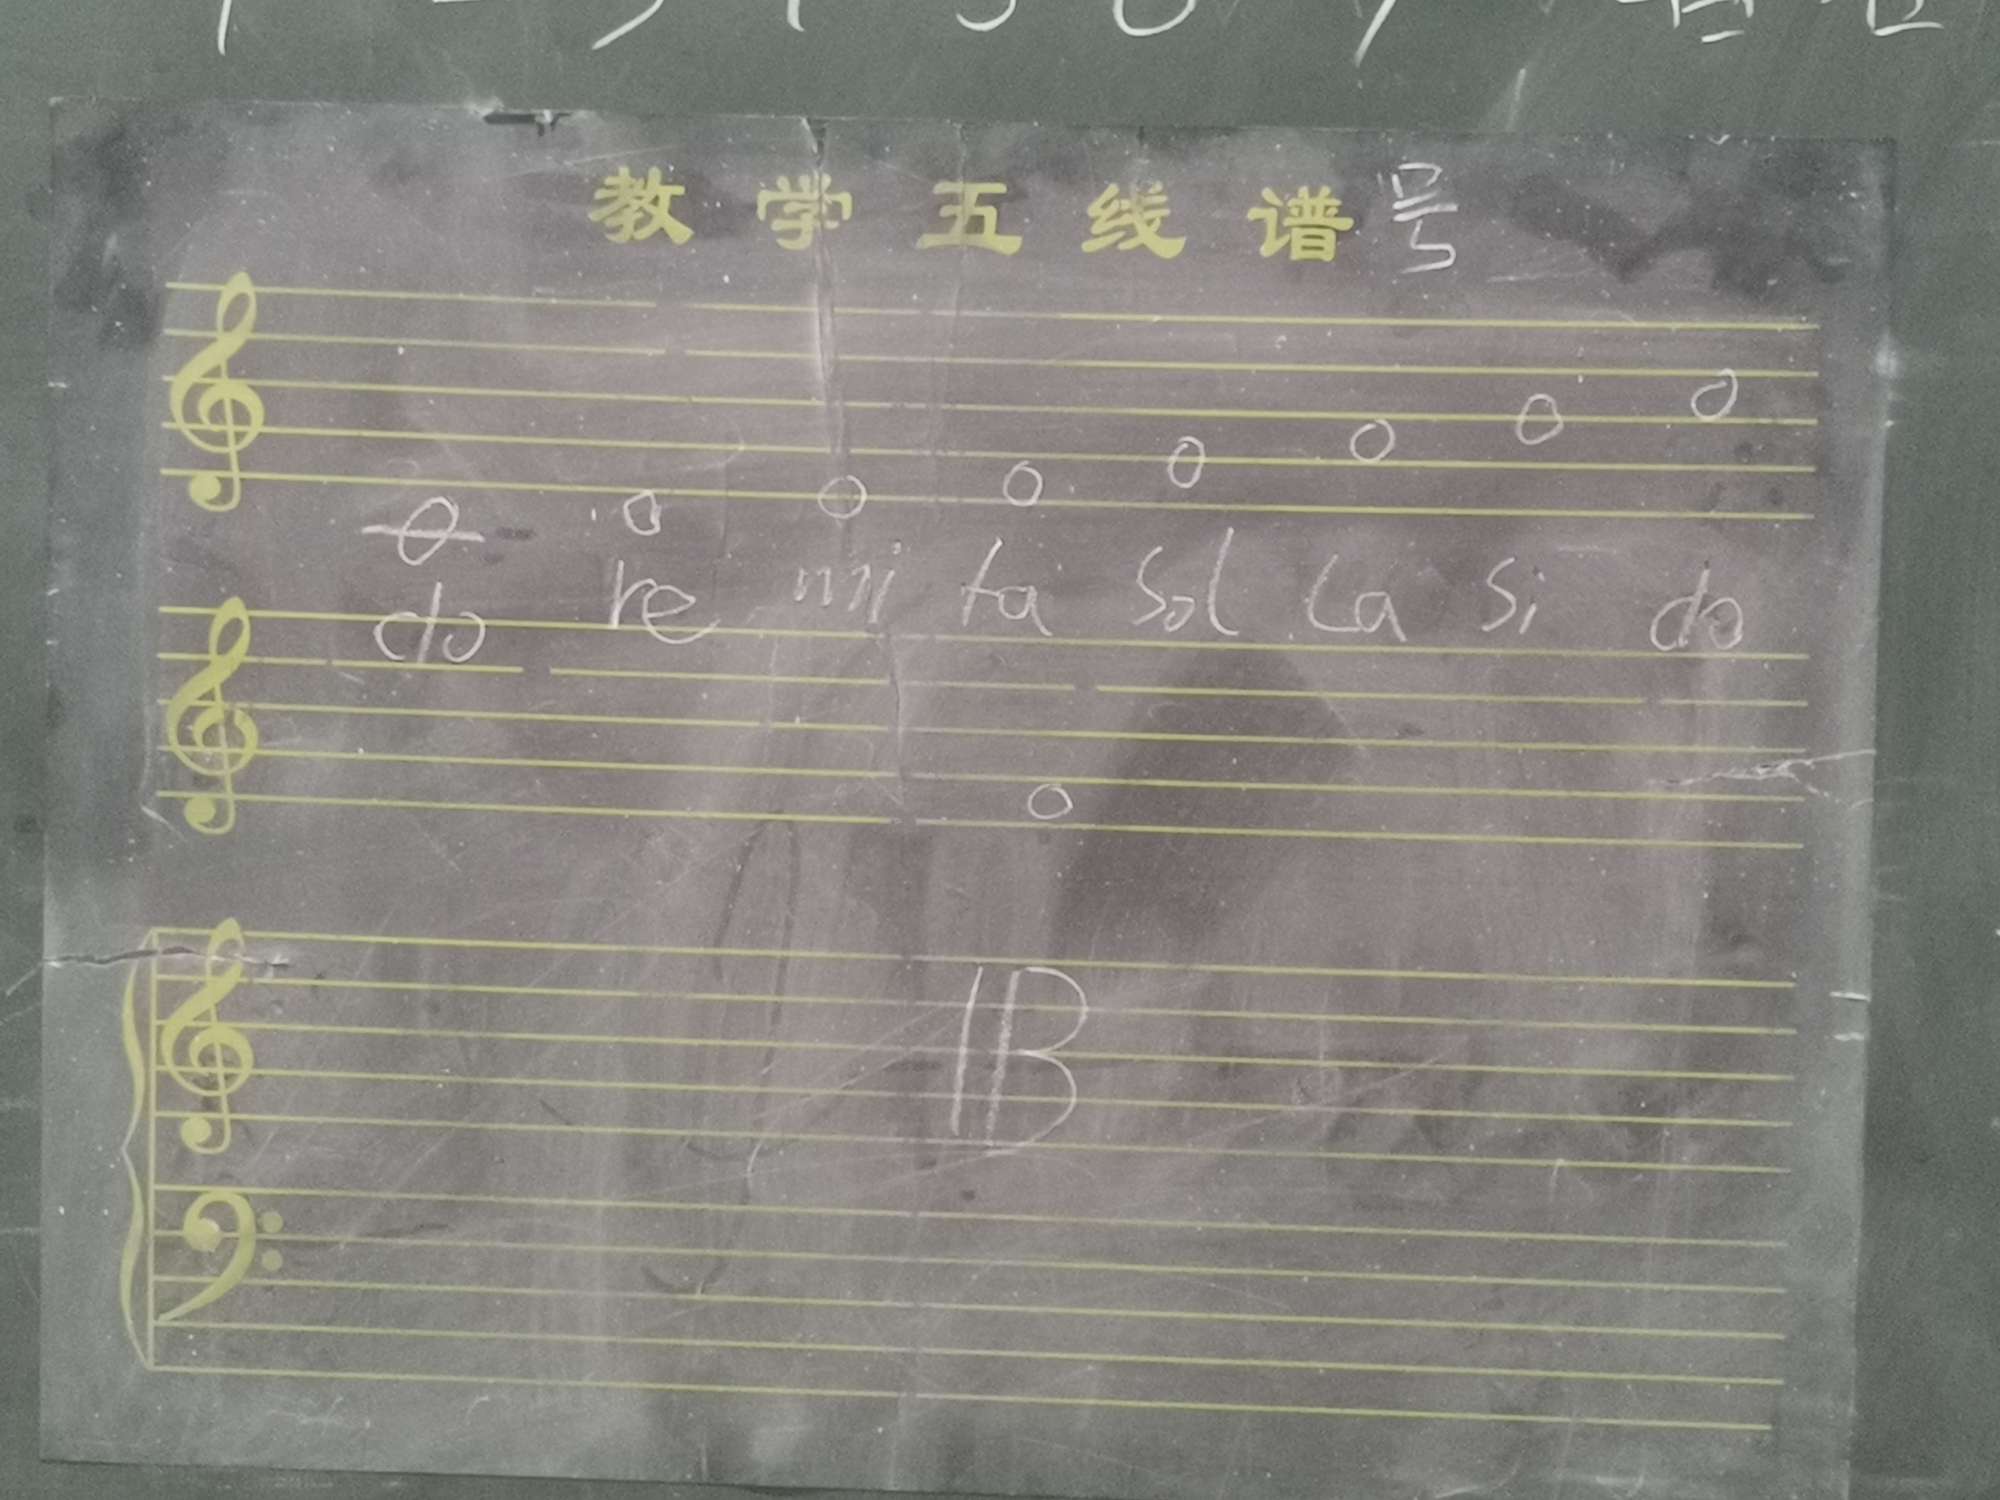 教学五线谱号
do re mi fa sol La si do
B